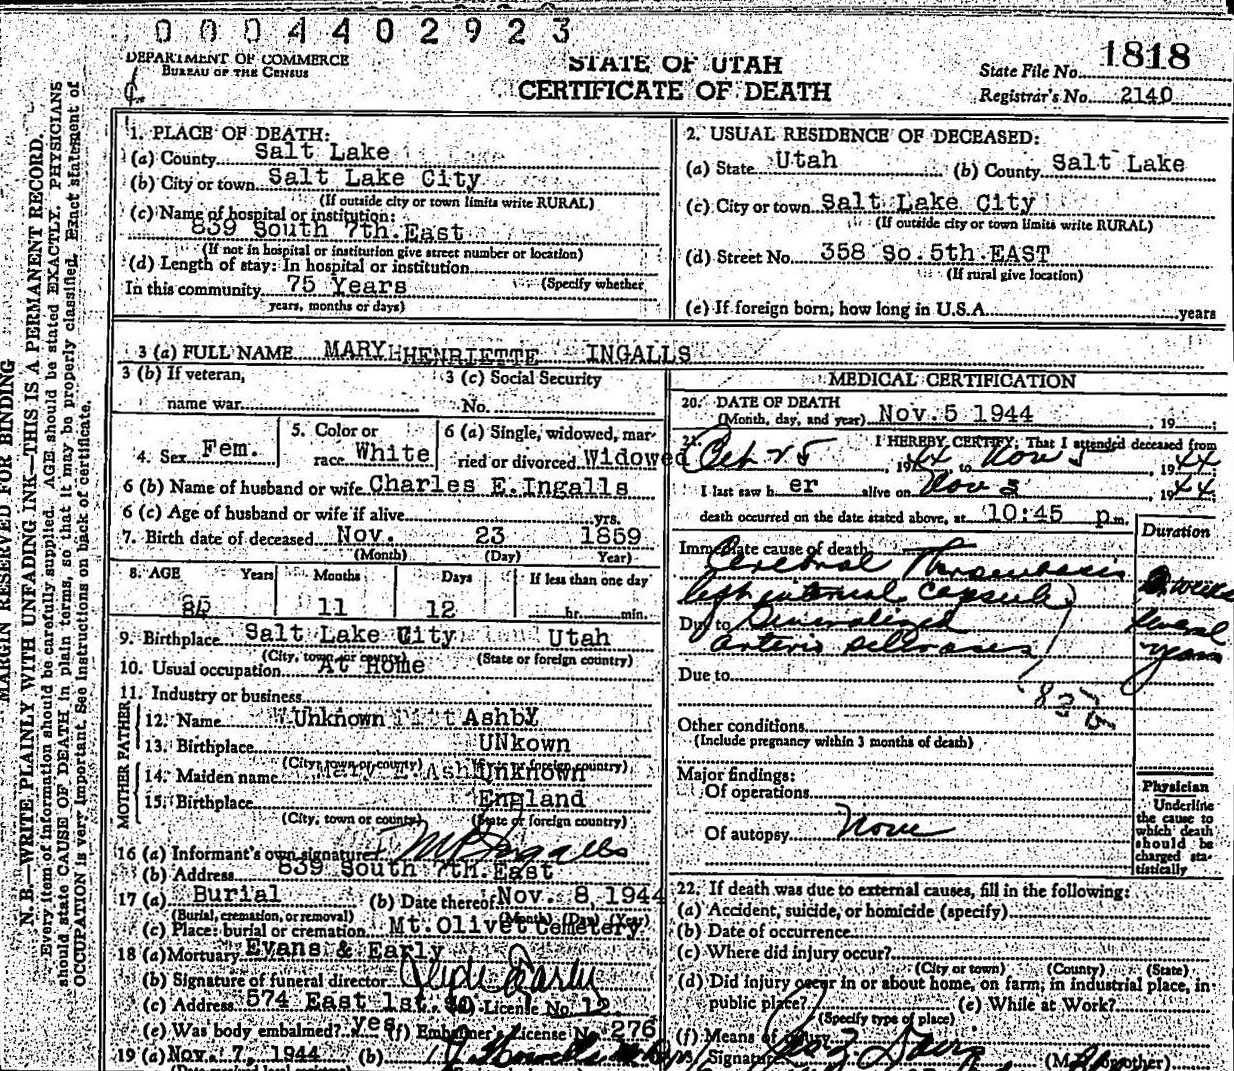 0004402923
DEPARTMENT OF COMMERCE
BUREAU OF THE CENSUS
STATE OF UTAH
CERTIFICATE OF DEATH
State File No. 1818
Registrar's No. 2140
MARGIN RESERVED FOR BINDING
N. B.—WRITE PLAINLY WITH UNFADING INK—THIS IS A PERMANENT RECORD.
Every item of information should be carefully supplied. AGE should be stated EXACTLY. PHYSICIANS
should state CAUSE OF DEATH in plain terms, so that it may be properly classified. Exact statement of
OCCUPATION is very important. See instructions on back of certificate.
1. PLACE OF DEATH:
(a) County Salt Lake
(b) City or town Salt Lake City
(If outside city or town limits write RURAL)
(c) Name of hospital or institution:
839 South 7th.East
(If not in hospital or institution give street number or location)
(d) Length of stay: In hospital or institution
In this community 75 Years (Specify whether
years, months or days)
2. USUAL RESIDENCE OF DECEASED:
(a) State Utah (b) County Salt Lake
(c) City or town Salt Lake City
(If outside city or town limits write RURAL)
(d) Street No. 358 So.5th.EAST
(If rural give location)
(e) If foreign born, how long in U.S.A. years
3 (a) FULL NAME MARY HENRIETTE INGALLS
3 (b) If veteran,
name war
3 (c) Social Security
No.
4. Sex Fem.
5. Color or
race White
6 (a) Single, widowed, mar-
ried or divorced Widowed
6 (b) Name of husband or wife Charles E.Ingalls
6 (c) Age of husband or wife if alive yrs.
7. Birth date of deceased Nov. 23 1859
(Month) (Day) Year)
8. AGE Years Months Days If less than one day
11 12 hr. min.
9. Birthplace Salt Lake City Utah
(City, town or county) (State or foreign country)
10. Usual occupation At Home
11. Industry or business
FATHER
12. Name Unknown Ashby
13. Birthplace UNkown
(City, town or county) (State or foreign country)
MOTHER
14. Maiden name Unknown
15. Birthplace England
(City, town or county) (State or foreign country)
16 (a) Informant's own signature M B Ingalls
(b) Address 839 South 7th.East
17 (a) Burial (b) Date thereof Nov. 8,1944
(Burial, cremation, or removal) (Month) (Day) (Year)
(c) Place: burial or cremation Mt.Olivet Cemetery
18 (a) Mortuary Evans & Early
(b) Signature of funeral director Early
(c) Address 574 East 1st. (d) License No. 12
(e) Was body embalmed? yes (f) Embalmer's License No. 276
19 (a) Nov. 7, 1944 (b)
MEDICAL CERTIFICATION
20. DATE OF DEATH
(Month, day, and year) Nov.5 1944 , 19
21. I HEREBY CERTIFY, That I attended deceased from
Oct 25, 1944 to Nov 5, 1944
I last saw her alive on Nov 3, 1944
death occurred on the date stated above, at 10:45 p.m.
Duration
Immediate cause of death Cerebral Thrombosis
left internal capsule 2 weeks
Due to Generalized several
arterio sclerosis years
Due to
Other conditions
(Include pregnancy within 3 months of death)
Major findings:
Of operations
Of autopsy None
Physician
Underline
the cause to
which death
should be
charged sta-
tistically
22. If death was due to external causes, fill in the following:
(a) Accident, suicide, or homicide (specify)
(b) Date of occurrence
(c) Where did injury occur?
(City or town) (County) (State)
(d) Did injury occur in or about home, on farm, in industrial place, in
public place? (e) While at Work?
(Specify type of place)
(f) Means of injury
Signature (M.D. or other)